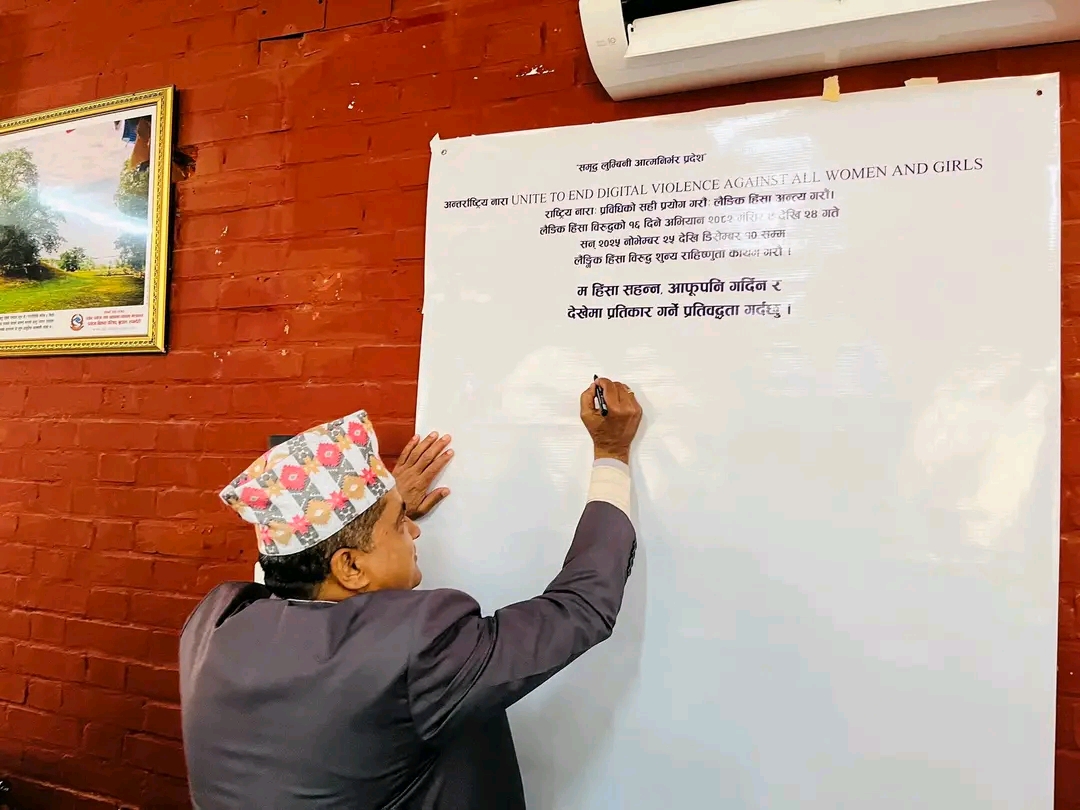 "समृद्ध लुम्बिनी आत्मनिर्भर प्रदेश"
अन्तर्राष्ट्रिय नारा UNITE TO END DIGITAL VIOLENCE AGAINST ALL WOMEN AND GIRLS
राष्ट्रिय नाराः प्रविधिको सही प्रयोग गरौः लैङिक हिंसा अन्त्य गरौ।
लैङिक हिंसा विरुद्धको १६ दिने अभियान २०८२ मंसिर देखि २४ गते
सन् २०२५ नोभेम्बर २५ देखि डिसेम्बर १० सम्म
लैङ्गिक हिंसा विरुद्ध शुन्य सहिष्णुता कायम गरौ ।
म हिंसा सहन्न, आफूपनि गर्दिन र
देखेमा प्रतिकार गर्ने प्रतिवद्धता गर्दछु ।